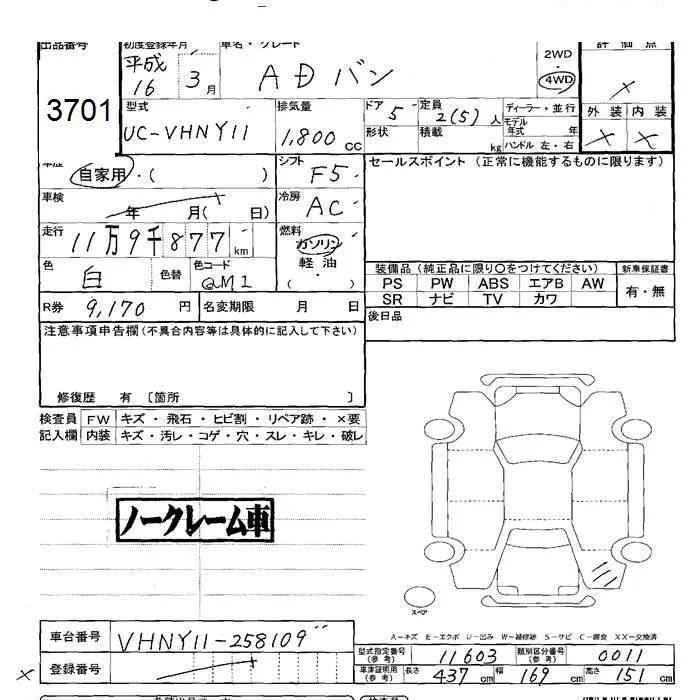 出品番号 初度登録年月 車名・グレード 評価点
平成 16 3月 ADバン 2WD 4WD ×
3701 型式 排気量 ドア 5 定員 2(5)人 ディーラー・並行 外装 内装
UC-VHNY11 1,800 cc 形状 積載 kg モデル年式 年 ハンドル 左・右 × ×
車歴 自家用・( ) シフト F5 セールスポイント (正常に機能するものに限ります)
車検 年 月( 日) 冷房 AC
走行 11万9千877km 燃料 ガソリン 軽油 ( ・ )
色 白 色替 色コード QM1
装備品(純正品に限り○をつけてください) 新車保証書
PS PW ABS エアB AW 有・無
SR ナビ TV カワ
R券 9,170 円 名変期限 月 日 後日品
注意事項申告欄(不具合内容等は具体的に記入して下さい)
修復歴 有 〔箇所 〕
検査員 FW キズ・飛石・ヒビ割・リペア跡・×要
記入欄 内装 キズ・汚レ・コゲ・穴・スレ・キレ・破レ
ノークレーム車
スペア
A−キズ E−エクボ U−凹み W−補修跡 S−サビ C−腐食 XX−交換済
車台番号 VHNY11-258109
型式指定番号(参考) 11603 類別区分番号(参考) 0011
× 登録番号
車庫証明用(参考) 長さ 437 cm 幅 169 cm 高さ 151 cm